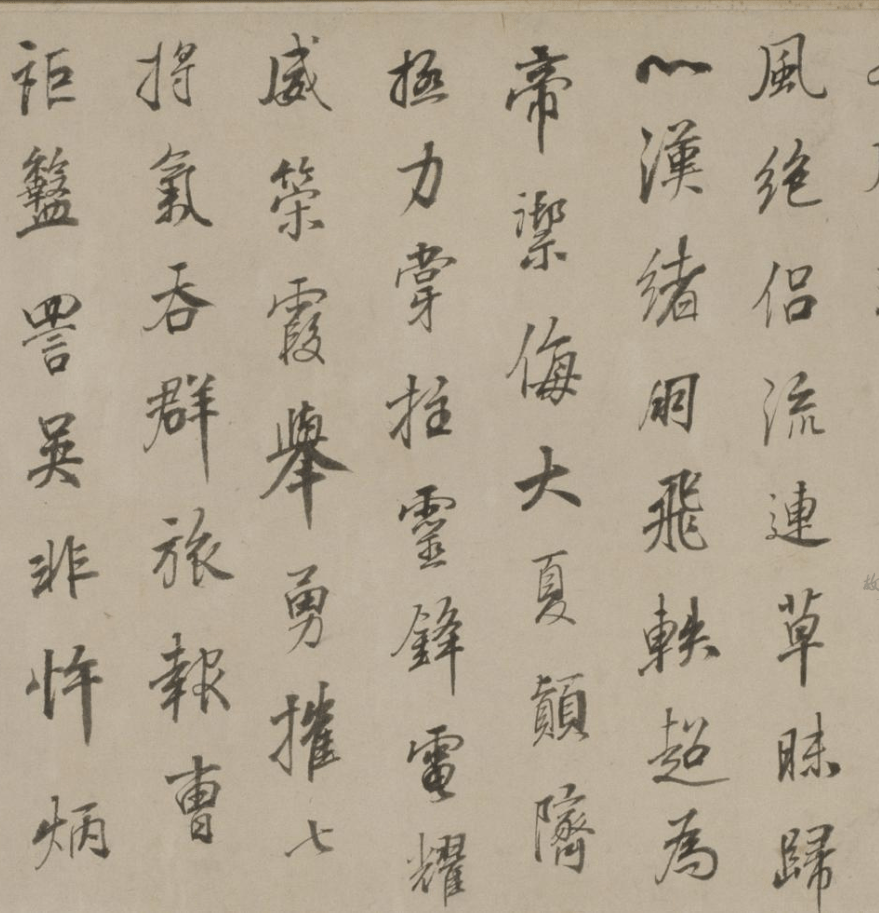 風絶侣流連草昧歸
心漢緒飛軼超為
帝禦侮大夏顛隮
拯力掌拄靈鋒電耀
威策霞舉勇摧七
將氣吞群旅報曹
詎盭詈吳非忤炳